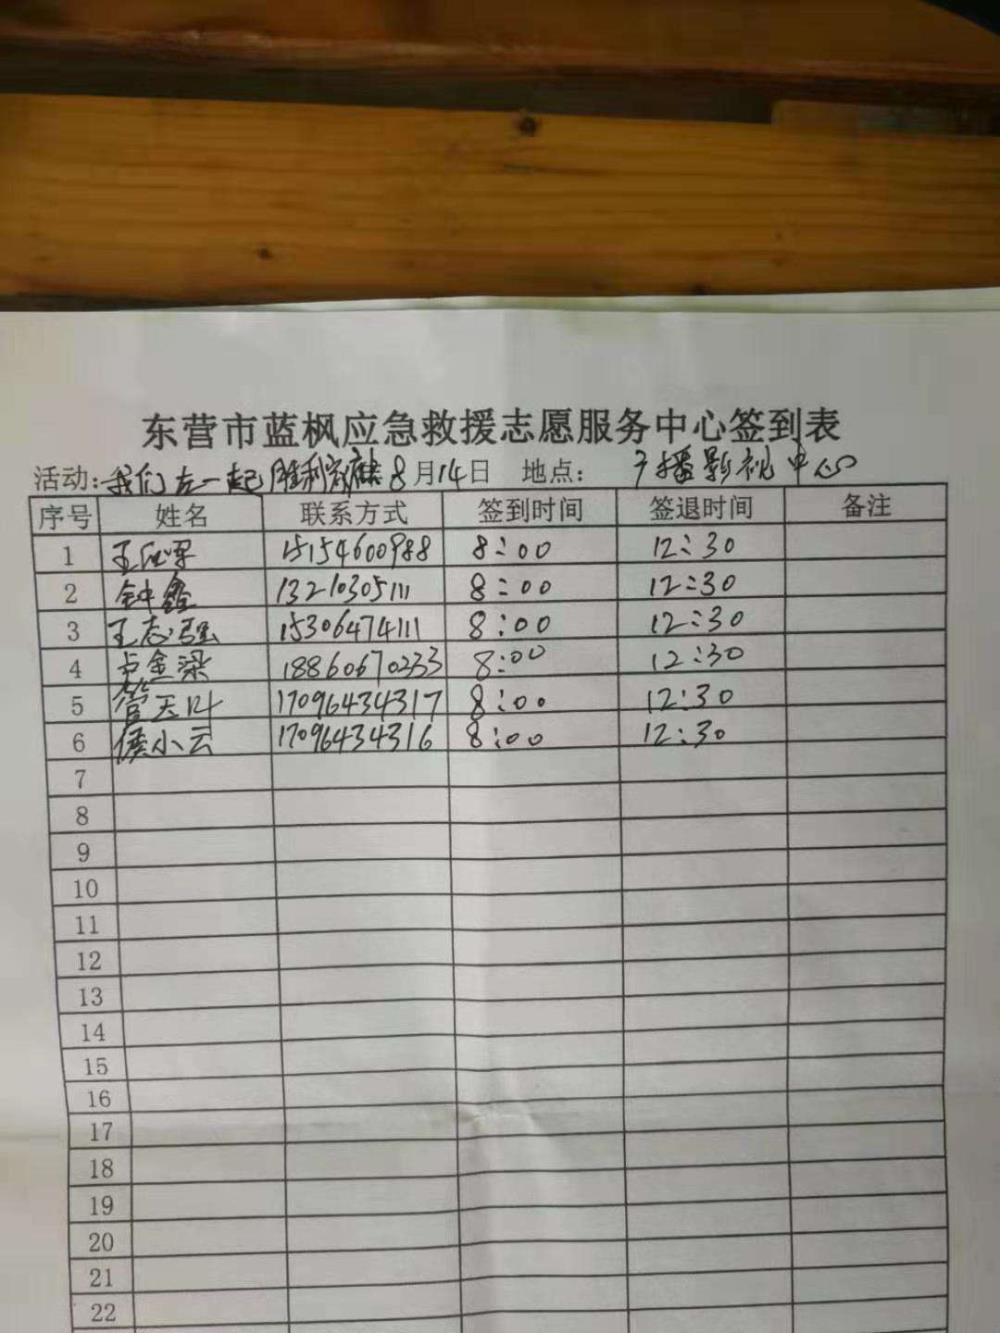 东营市蓝枫应急救援志愿服务中心签到表
活动:我们在一起 胜利 8月14日 地点: 广播影视中心
序号 姓名 联系方式 签到时间 签退时间 备注
1 王 15154600988 8:00 12:30
2 钟鑫 13210305111 8:00 12:30
3 王志强 15306474111 8:00 12:30
4 卢金梁 18860670233 8:00 12:30
5 管天叶 17096434317 8:00 12:30
6 侯小云 17096434316 8:00 12:30
7
8
9
10
11
12
13
14
15
16
17
18
19
20
21
22